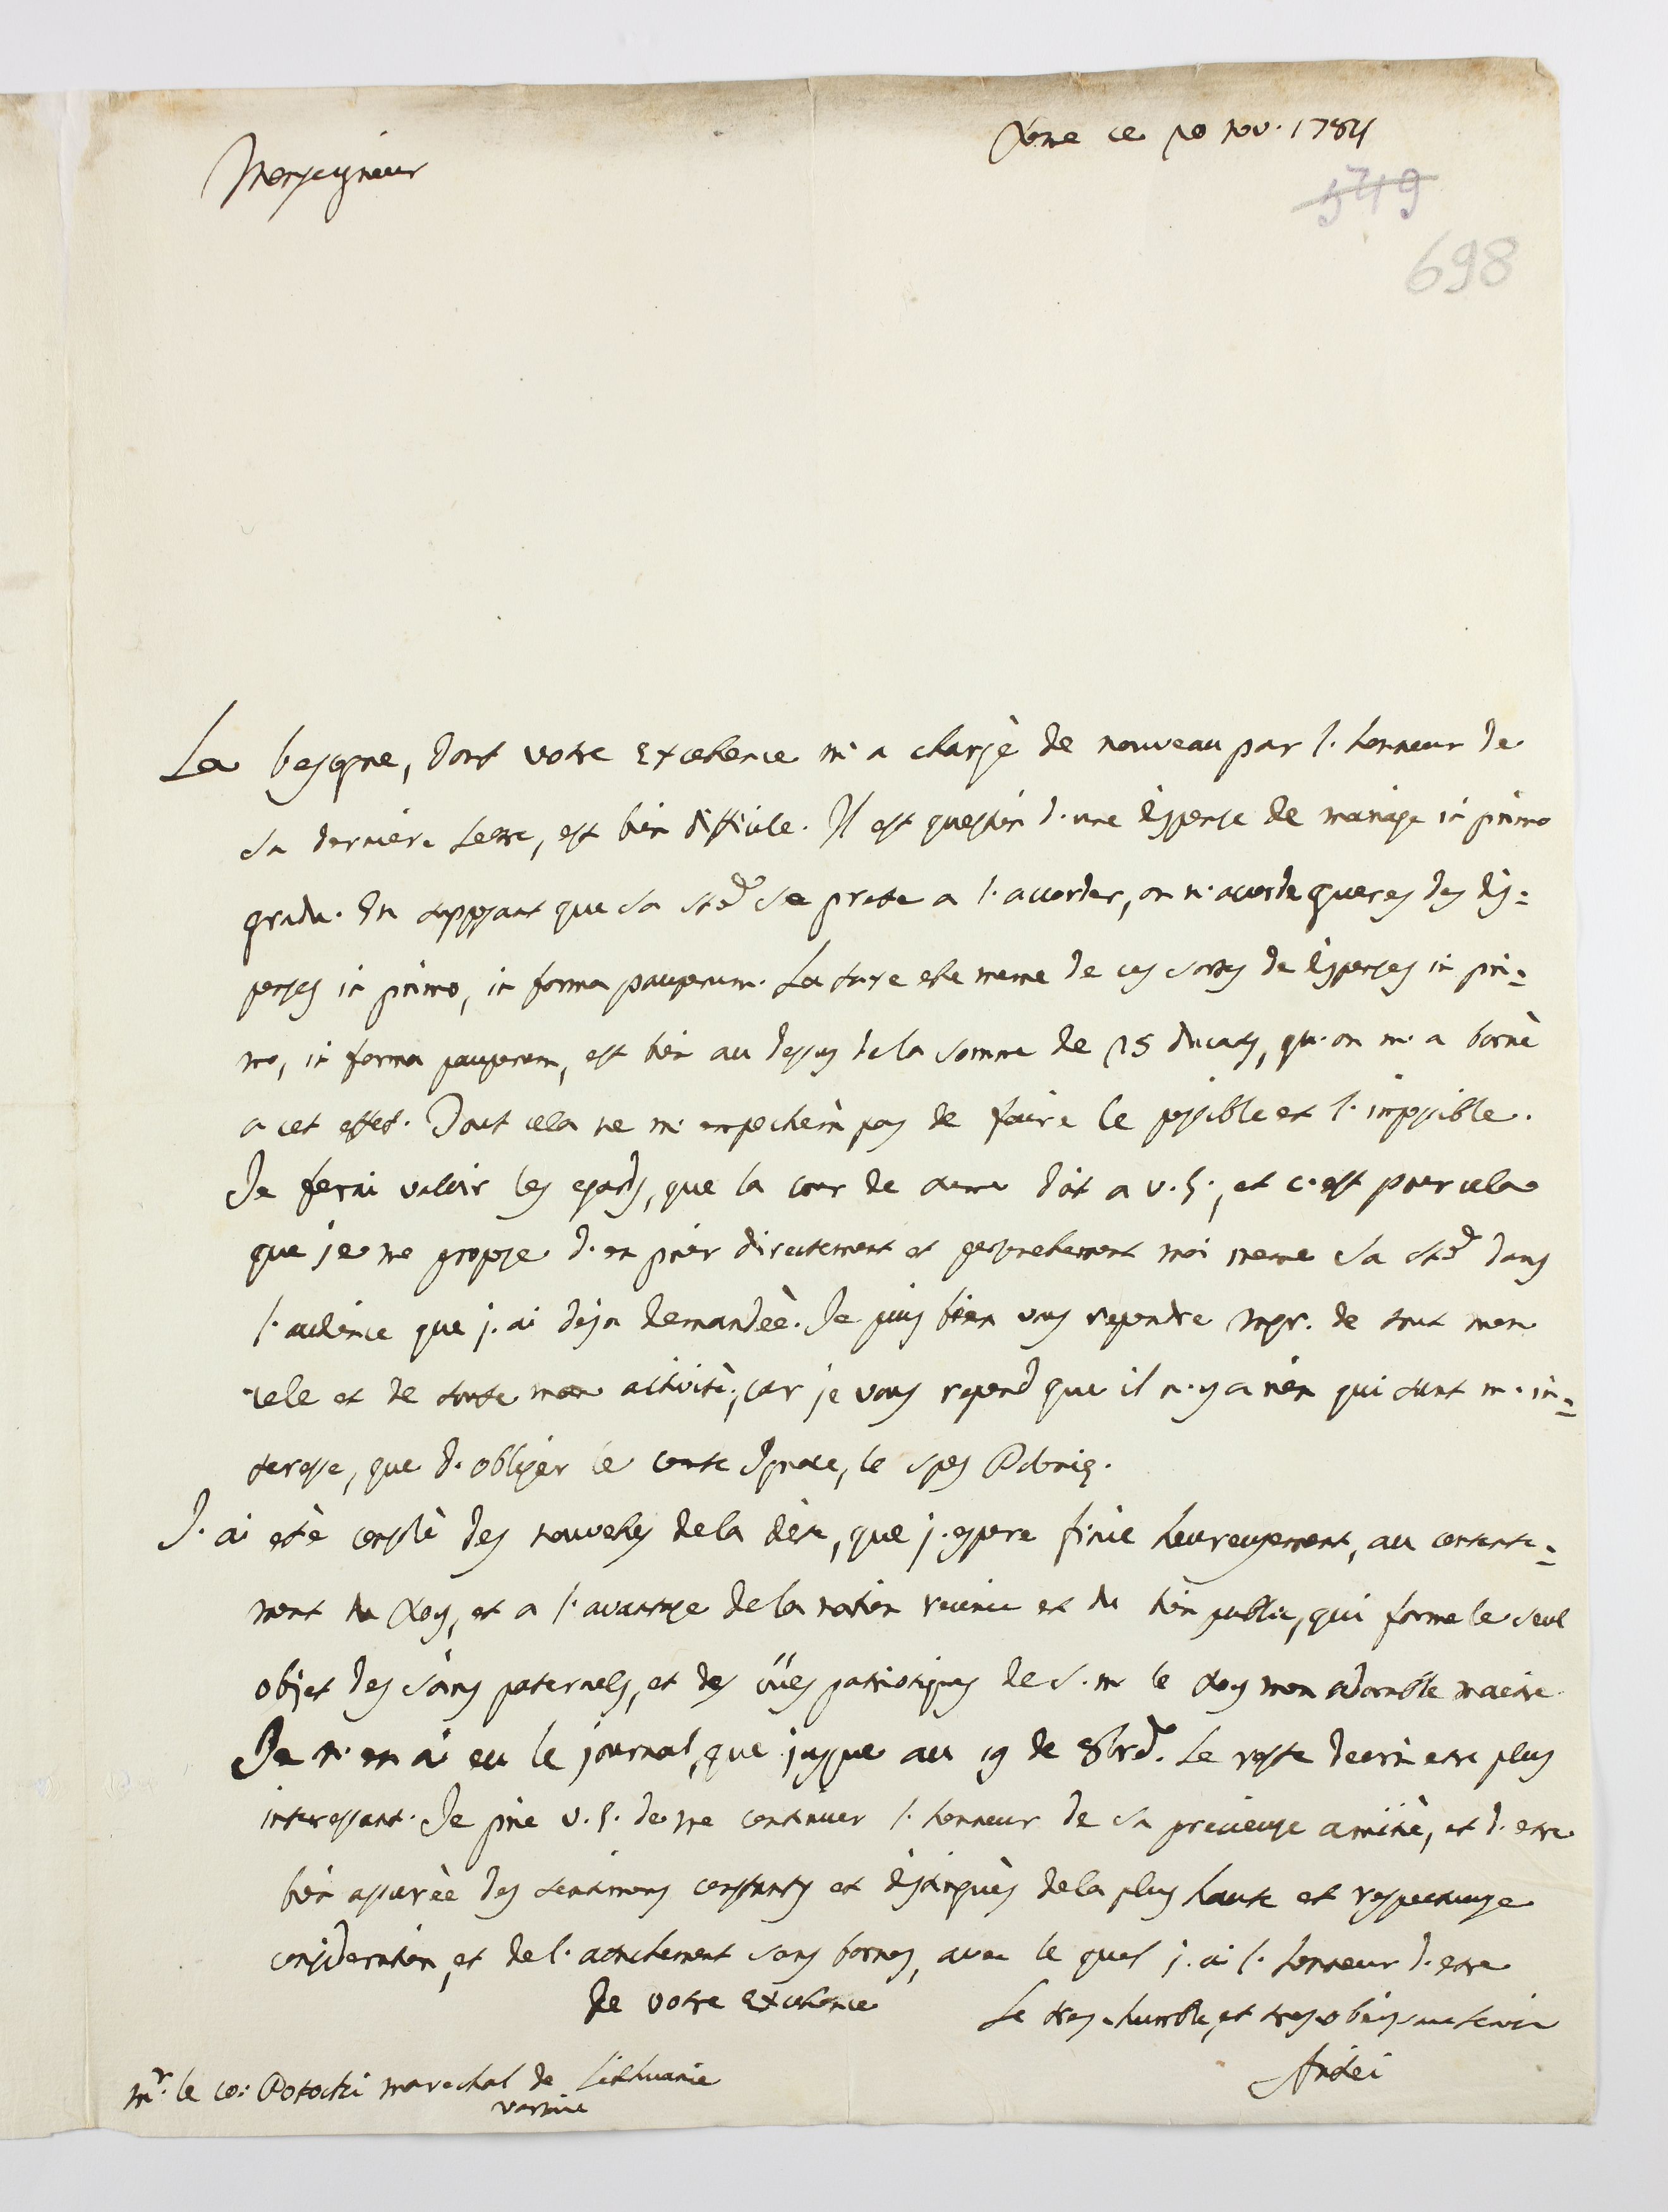 Rome ce 10 nov. 1784
Monseigneur
549
698
La besogne, dont votre Excelence m'a chargè de nouveau par l'honneur de
sa derniere Lettre, est bien difficile. Il est question d'une dispense de mariage in primo
gradu. En supposant que sa Sté se prete a l'accorder, on n'accorde gueres des dis=
penses in primo, in forma pauperum. La taxe elle meme de ces sortes de dispenses in pri=
mo, in forma pauperum, est bien au dessus de la somme de 15 ducats, qu'on m'a bornè
a cet effet. Tout cela ne m'empechera pas de faire le possible et l'impossible.
Je ferai valoir les egards, que la cour de Rome doit a V. E., et c'est pour cela
que je me propose d'en prier directement et personelement moi meme Sa Sté dans
l'audience que j'ai deja demandèe. Je puis bien vous repondre Mgr. de tout mon
zele et de toute mon activitè, car je vous repond que il n'y a rien qui tant m'in=
teresse, que d'obliger le comte Ignace, le spes
J'ai etè consolè des nouvelles de la diete, que j'espere finie heureusement, au contente=
ment du Roy, et a l'avantage de la nation reunie et du bien public, qui forme le seul
objet des soins paternels, et des vües patriotiques de S. M. le Roy mon adorable maitre.
Je n'en ai eu le journal, que jusque au 19 de 8bre. Le reste devra etre plus
interessant. Je prie V. E. de me continuer l'honneur de sa precieuse amitiè, et d'etre
bien assurèe des sentimens constants et distinguès de la plus haute et respectueuse
consideration, et de l'atachement sans bornes, avec le quel j'ai l'honneur d'etre
de votre Excelence
Le tres humble, et tres obeissant
Antici
Mr. le co: Potocki marechal de Lithuanie
varsovie